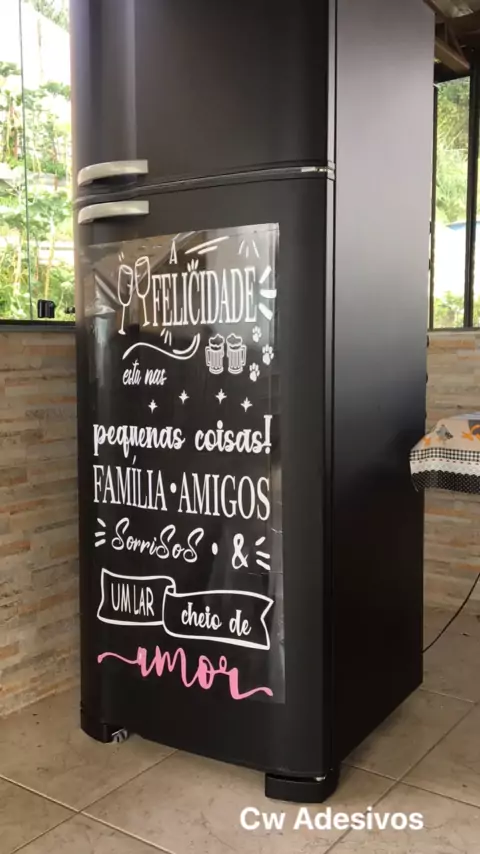 A
FELICIDADE
esta nas
pequenas coisas!
FAMÍLIA • AMIGOS
SorriSoS • &
UM LAR
cheio de
amor
Cw Adesivos